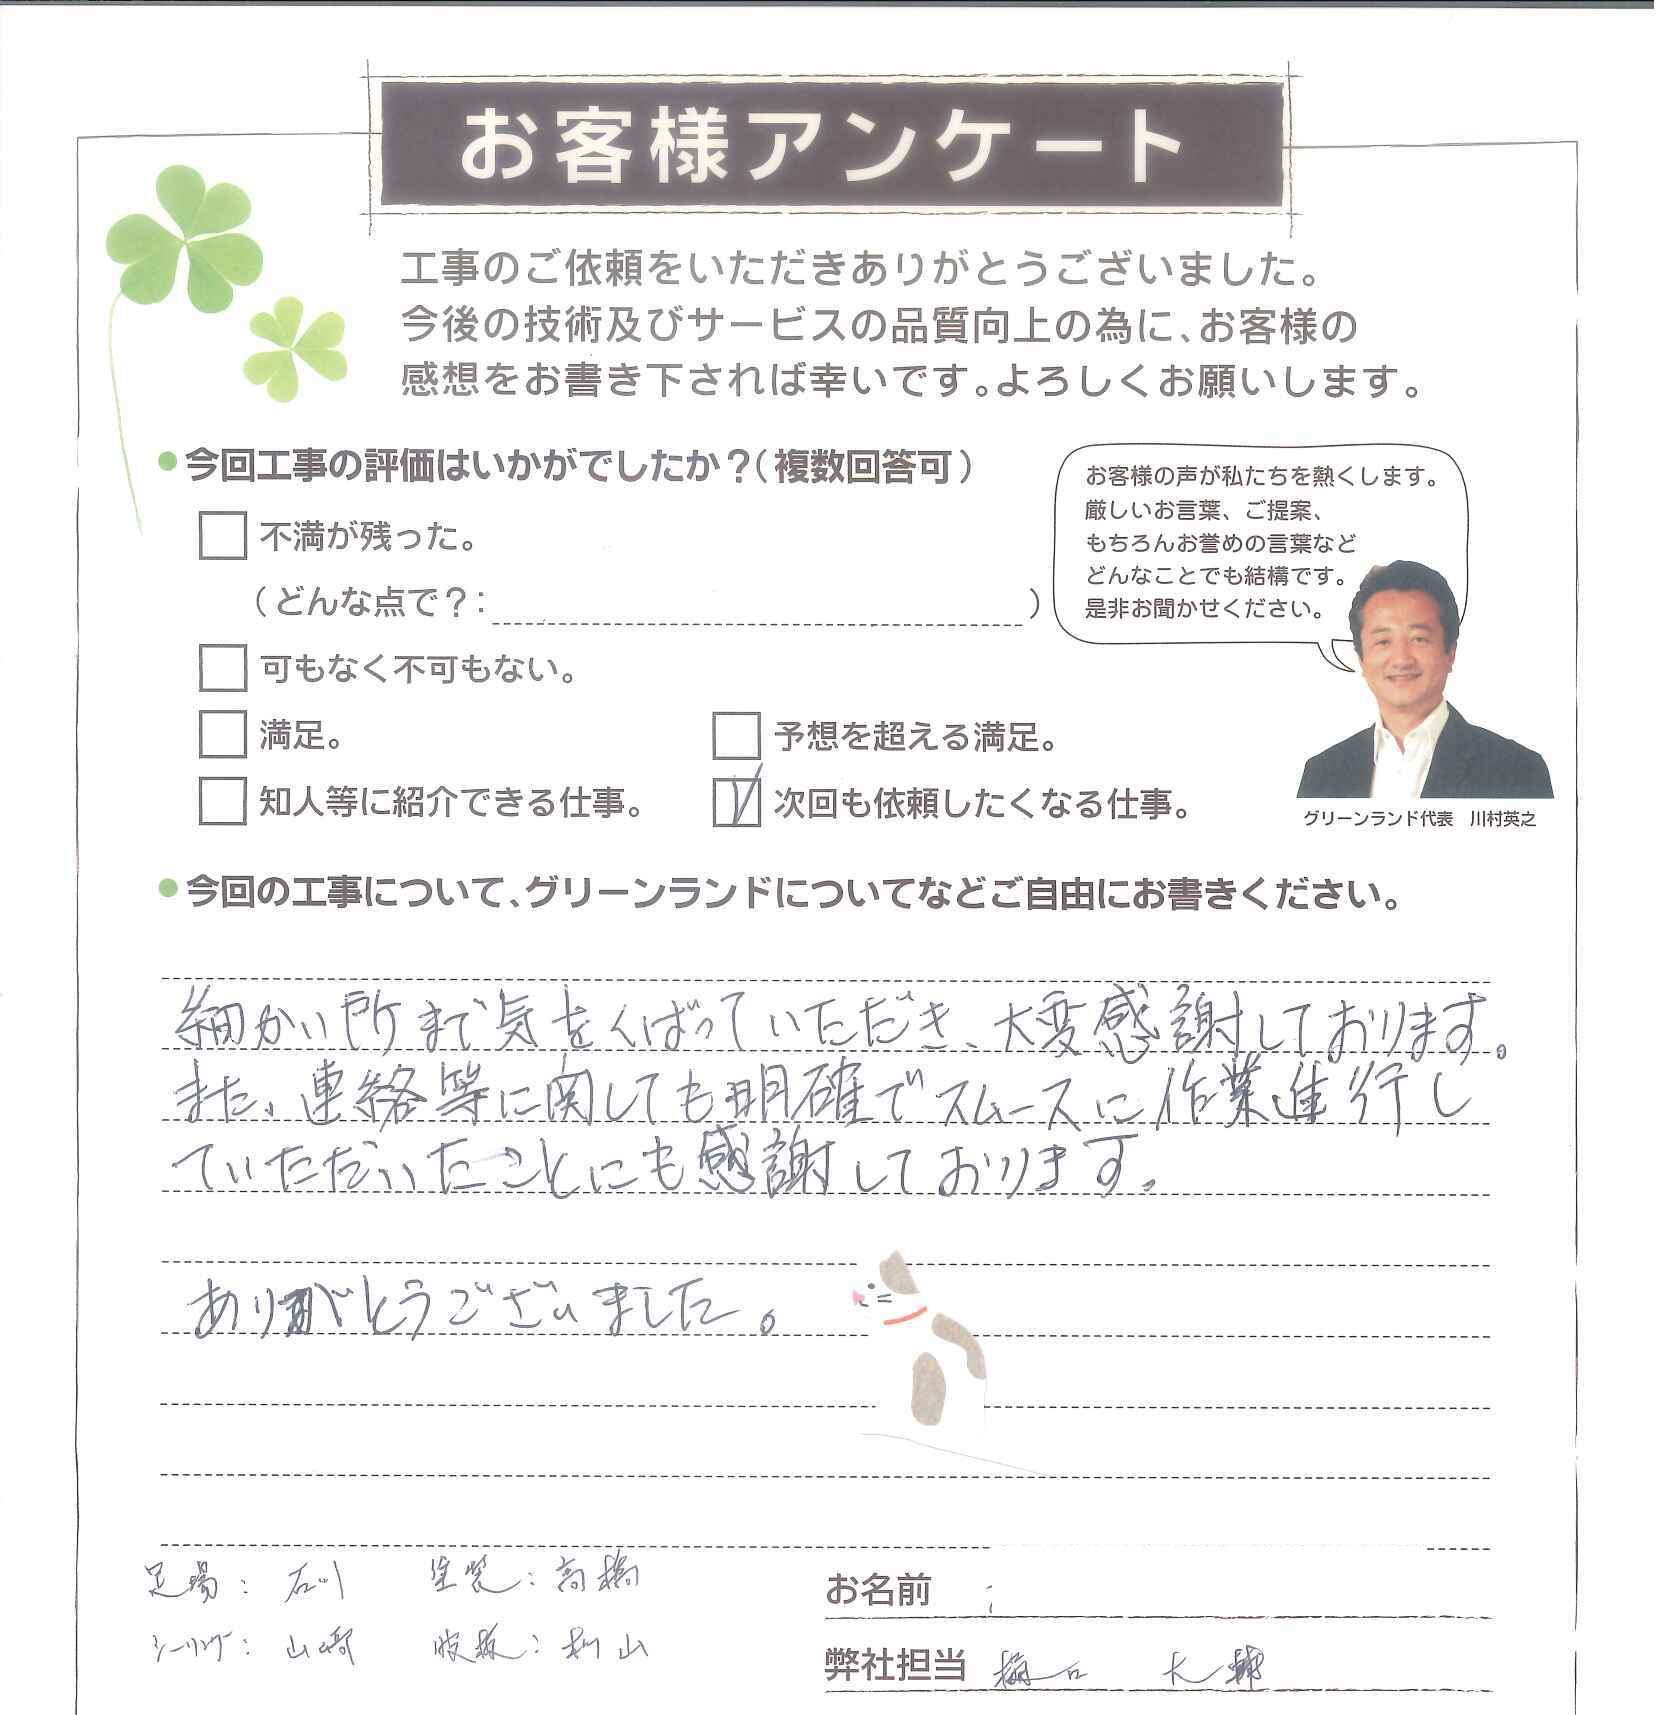 お客様アンケート
工事のご依頼をいただきありがとうございました。
今後の技術及びサービスの品質向上の為に、お客様の
感想をお書き下されば幸いです。よろしくお願いします。
今回工事の評価はいかがでしたか？（複数回答可）
不満が残った。
（どんな点で？：）
可もなく不可もない。
満足。
予想を超える満足。
知人等に紹介できる仕事。
次回も依頼したくなる仕事。
お客様の声が私たちを熱くします。
厳しいお言葉、ご提案、
もちろんお誉めの言葉など
どんなことでも結構です。
是非お聞かせください。
グリーンランド代表　川村英之
今回の工事について、グリーンランドについてなどご自由にお書きください。
細かい所まで気をくばっていただき、大変感謝しております。
また、連絡等に関しても明確でスムースに作業進行し
ていただいたことにも感謝しております。
ありがとうございました。
足場：石川　塗装：高橋
シーリング：山崎
お名前
弊社担当 樋口 大輔